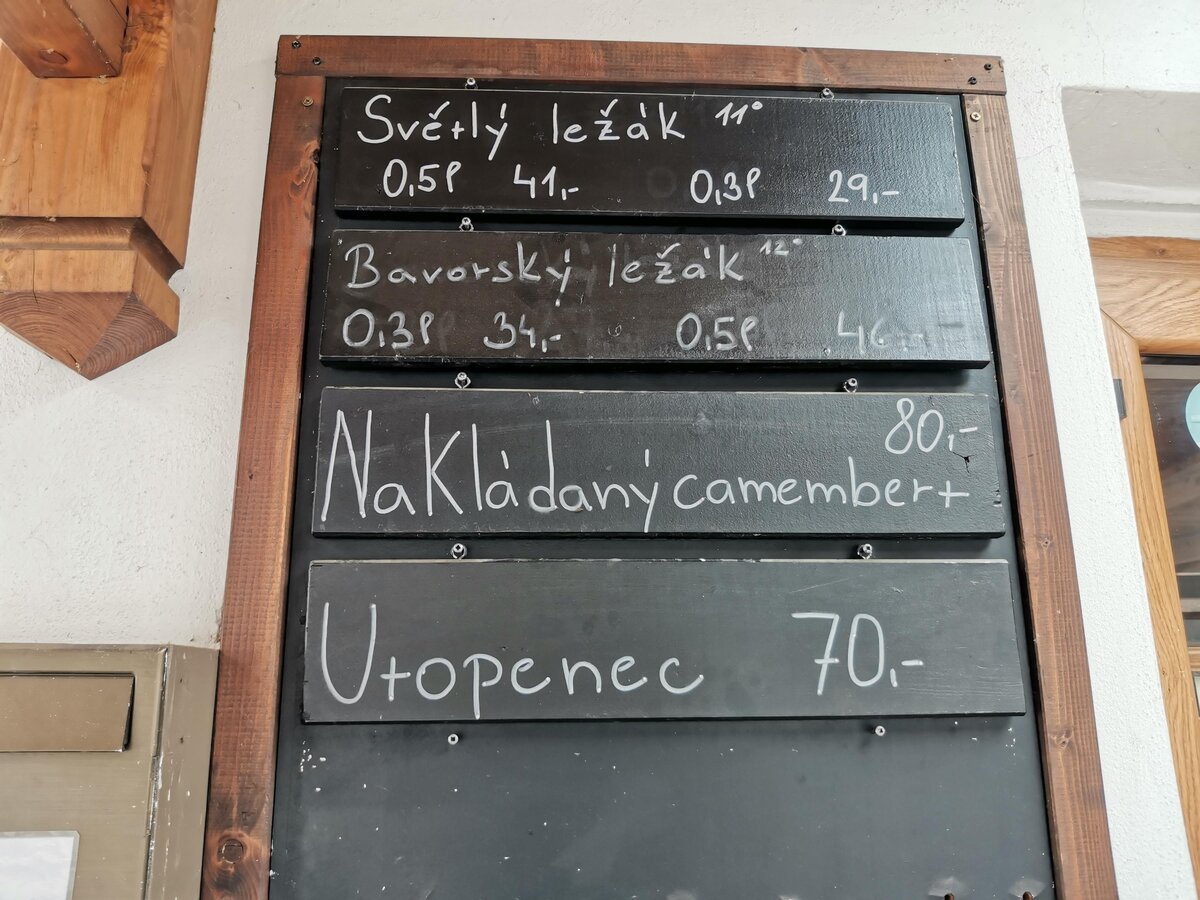 Světlý ležák 11°
0,5l 41,- 0,3l 29,-
Bavorský ležák 12°
0,3l 34,- 0,5l 46,-
80,-
Nakládaný camembert
Utopenec 70,-